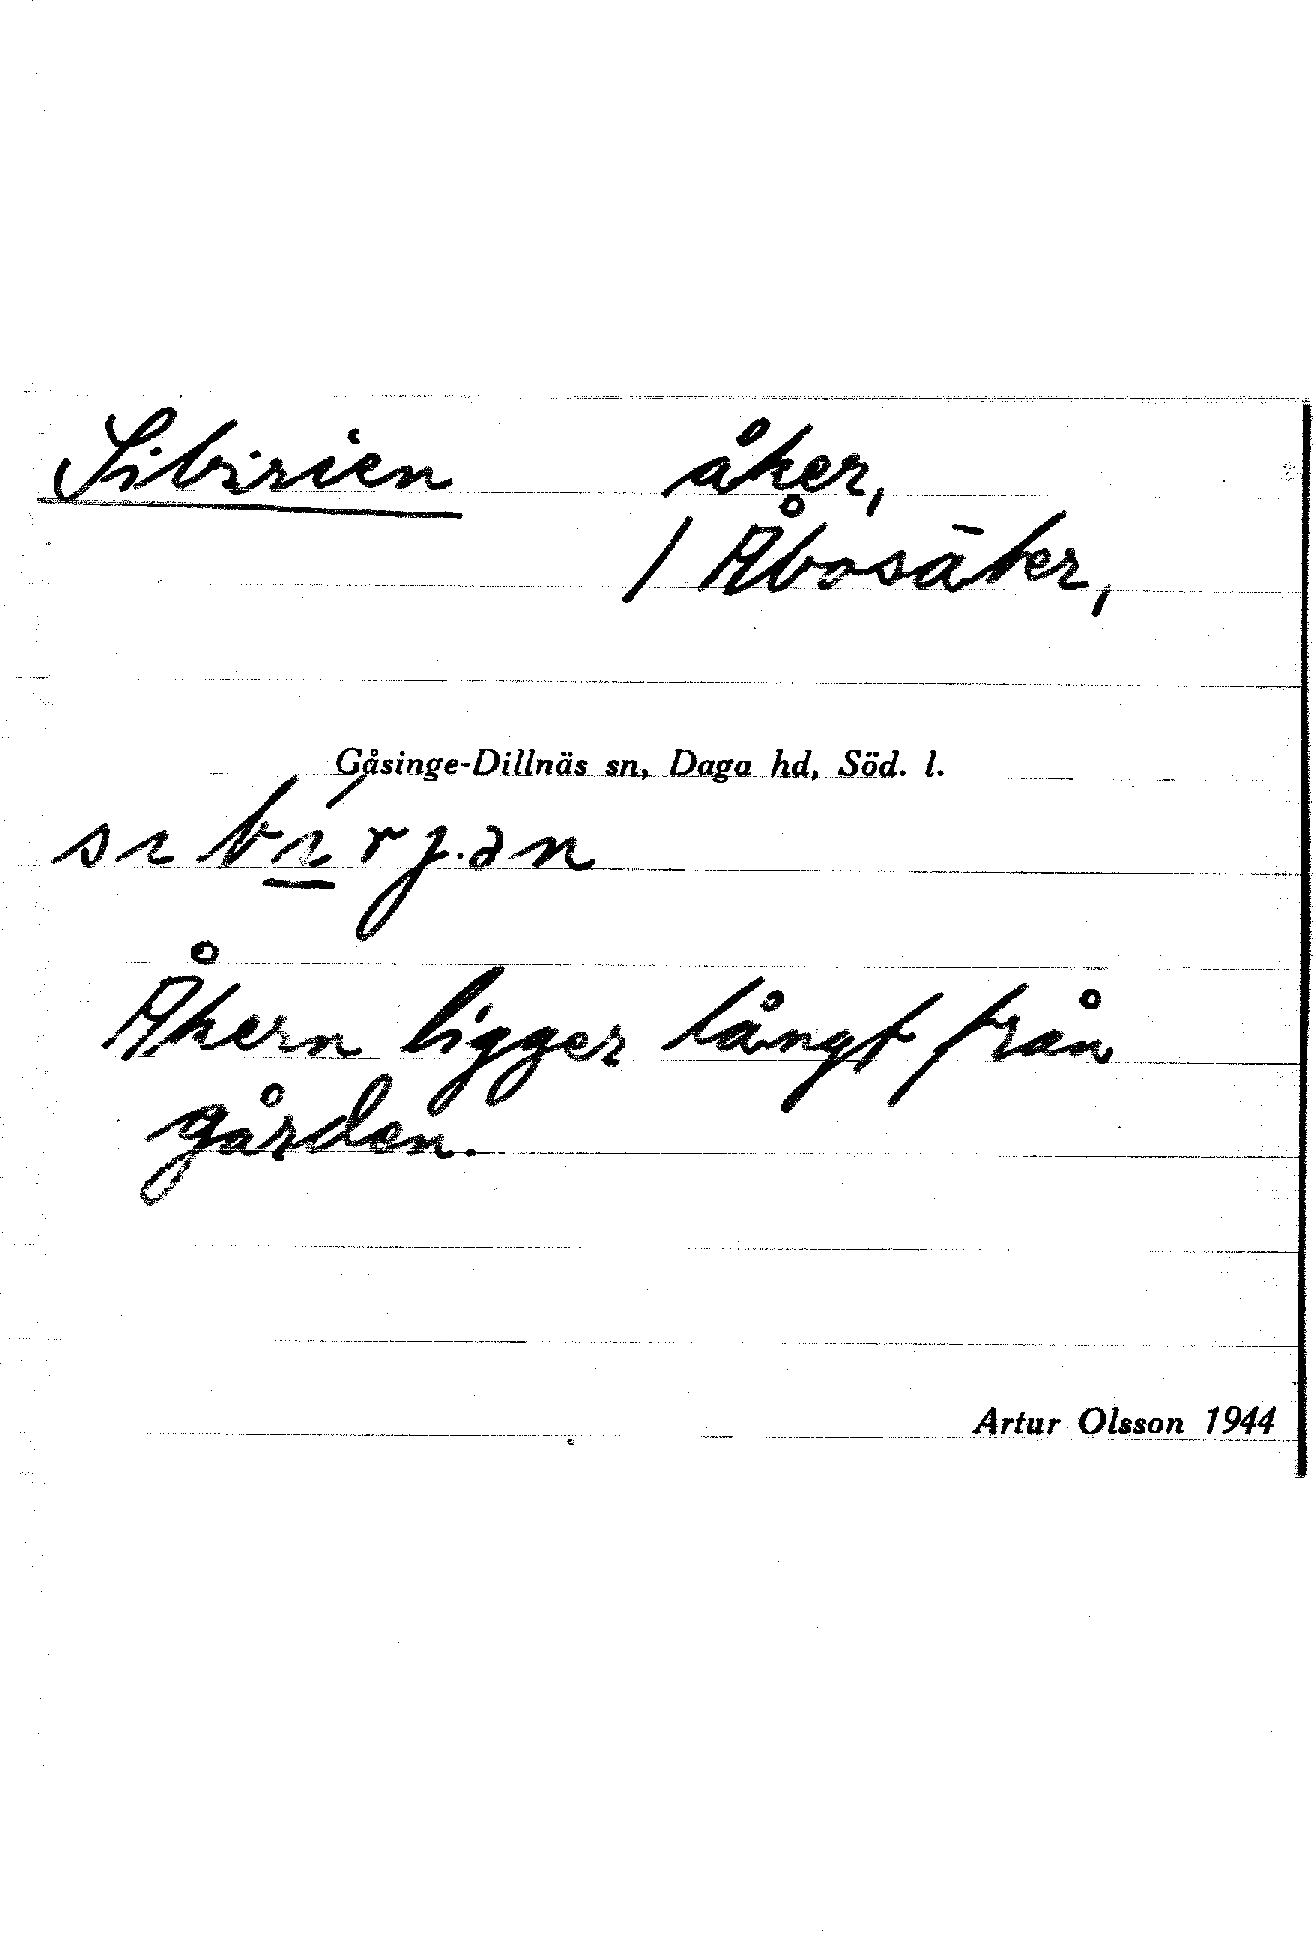 Sibirien åker,
/ Åbosäter,
Gåsinge-Dillnäs sn, Daga hd, Söd. l.
Åkern ligger långt från
gården.
Artur Olsson 1944